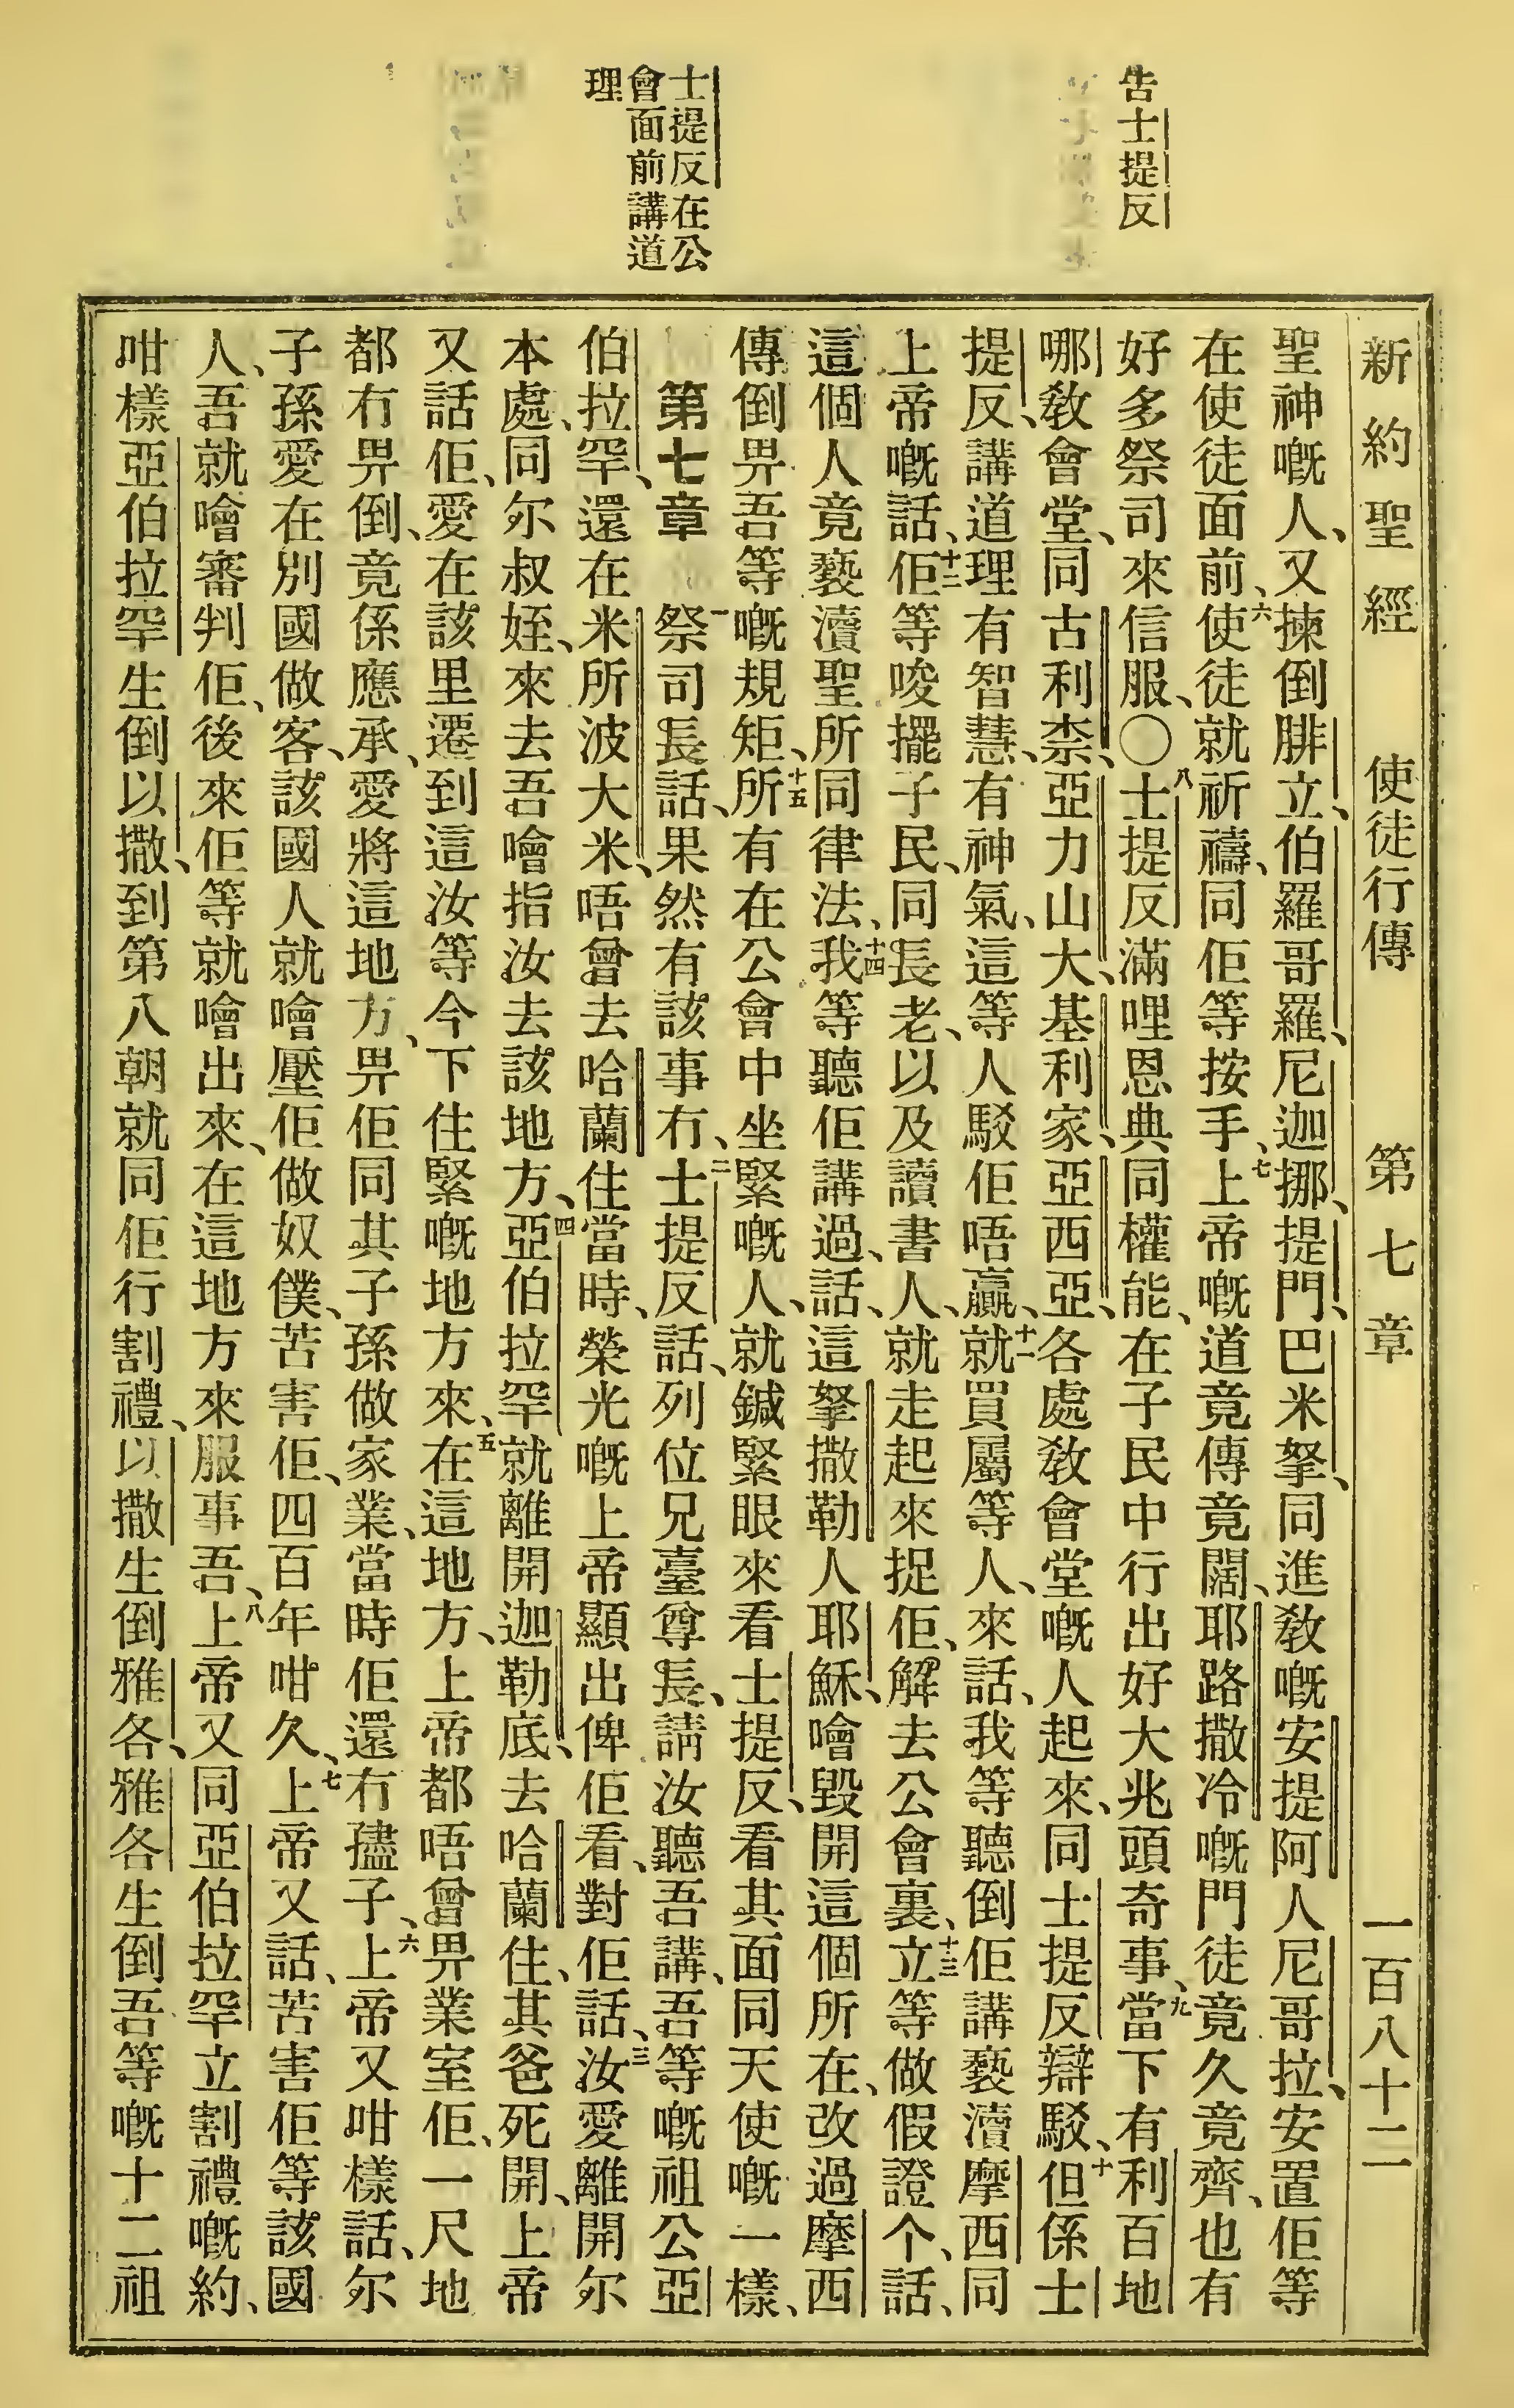 告士提反
士提反在公
會面前講道
理
新約聖經 使徒行傳 第七章 一百八十二
聖神嘅人、又揀倒腓立、伯羅哥羅、尼迦挪、提門、巴米拏、同進教嘅安提阿人尼哥拉、安置佢等
在使徒面前、六使徒就祈禱、同佢等按手、七上帝嘅道竟傳竟闊、耶路撒冷嘅門徒竟久竟齊、也有
好多祭司來信服、〇八士提反滿哩恩典同權能、在子民中行出好大兆頭奇事、九當下有利百地
哪教會堂、同古利柰、亞力山大、基利家、亞西亞、各處教會堂嘅人起來、同士提反辯駁、十但係士
提反、講道理有智慧、有神氣、這等人駁佢唔贏、十一就買屬等人、來話、我等聽倒佢講褻瀆摩西同
上帝嘅話、十二佢等唆擺子民、同長老、以及讀書人、就走起來捉佢、解去公會裏、十三立等做假證个、話、
這個人竟褻瀆聖所同律法、十四我等聽佢講過、話、這拏撒勒人耶穌、噲毀開這個所在、改過摩西
傳倒畀吾等嘅規矩、十五所有在公會中坐緊嘅人、就鍼緊眼來看士提反、看其面同天使嘅一樣、
第七章 一祭司長話、果然有該事冇、二士提反話、列位兄臺尊長、請汝聽吾講、吾等嘅祖公亞
伯拉罕、還在米所波大米、唔曾去哈蘭住當時、榮光嘅上帝顯出俾佢看、對佢話、三汝愛離開尔
本處、同尔叔姪、來去吾噲指汝去該地方、四亞伯拉罕就離開迦勒底、去哈蘭住、其爸死開、上帝
又話佢、愛在該里遷到這汝等今下住緊嘅地方來、五在這地方、上帝都唔曾畀業室佢、一尺地
都冇畀倒、竟係應承、愛將這地方、畀佢同其子孫做家業、當時佢還冇孻子、六上帝又咁樣話、尔
子孫愛在別國做客、該國人就噲壓佢做奴僕、苦害佢、四百年咁久、七上帝又話、苦害佢等該國
人、吾就噲審判佢、後來佢等就噲出來、在這地方來服事吾、八上帝又同亞伯拉罕立割禮嘅約、
咁樣亞伯拉罕生倒以撒、到第八朝就同佢行割禮、以撒生倒雅各、雅各生倒吾等嘅十二祖